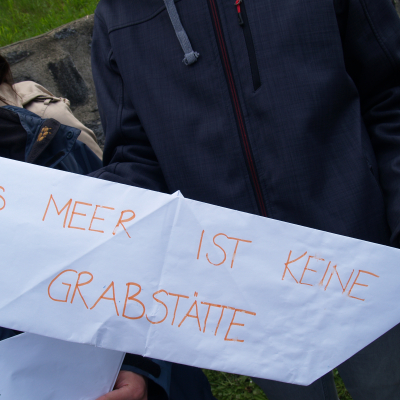 S MEER IST KEINE
GRABSTÄTTE